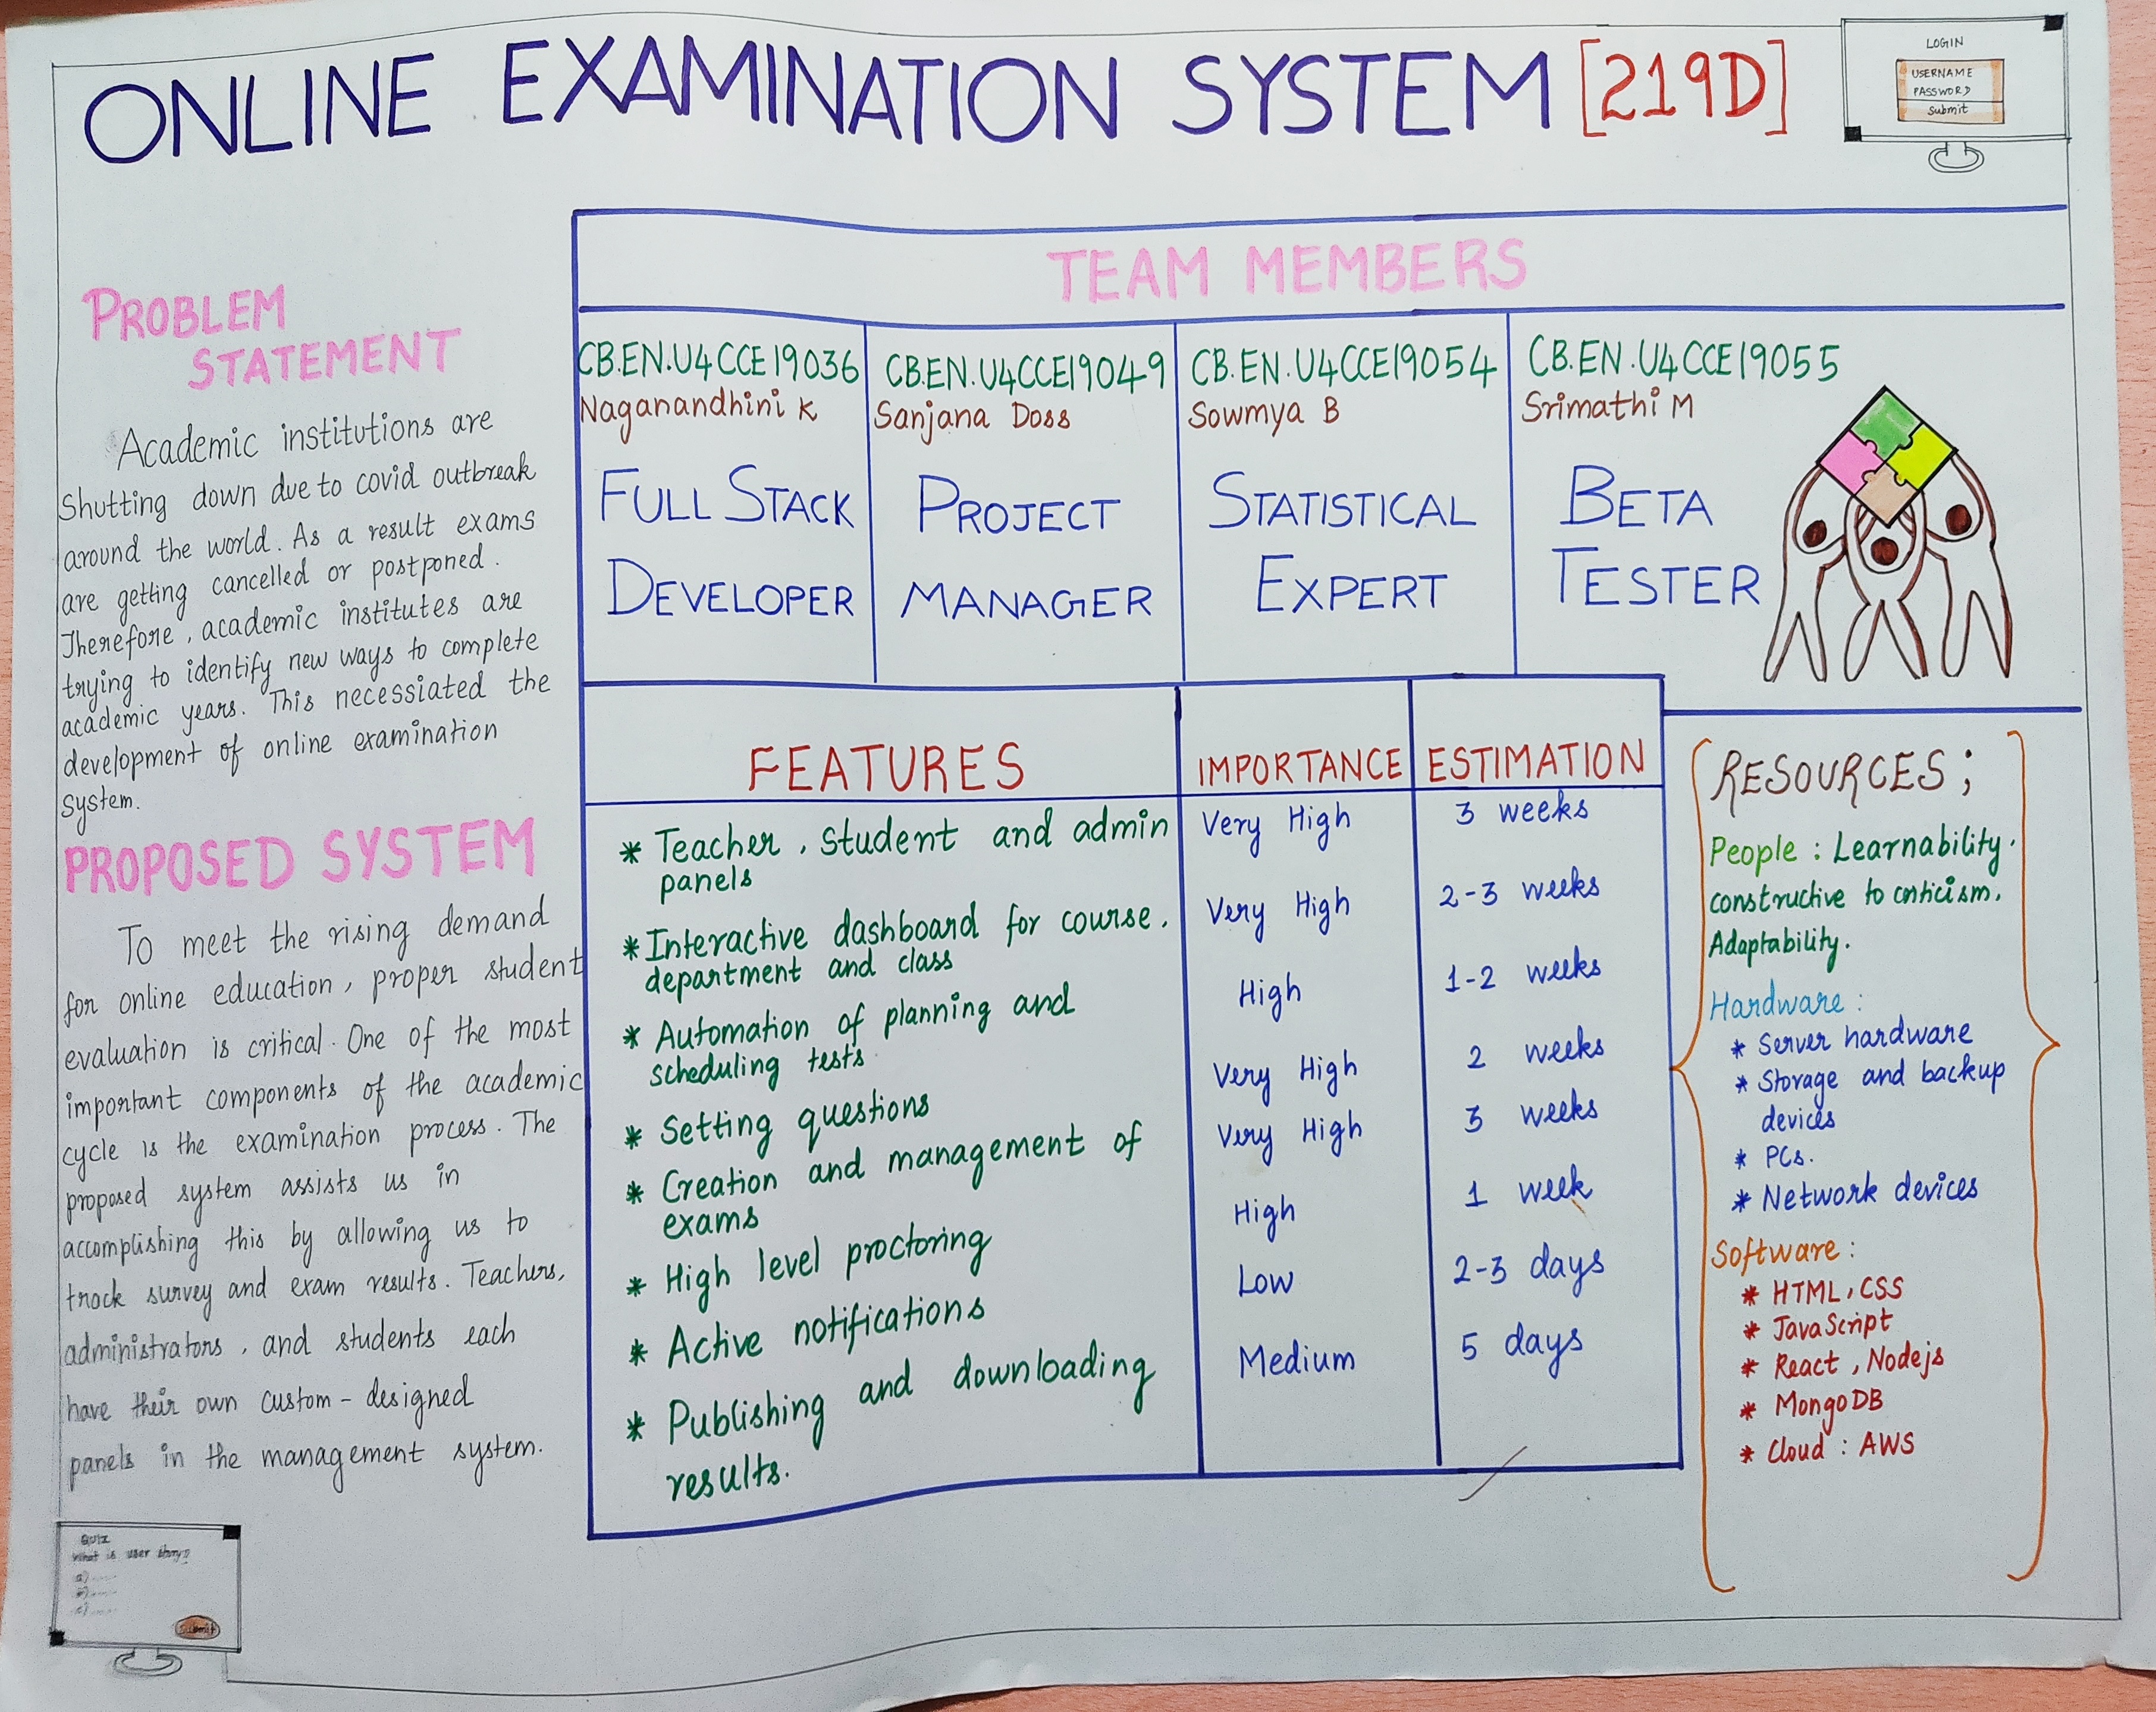 ONLINE EXAMINATION SYSTEM [219D]
LOGIN
USERNAME
PASSWORD
Submit
PROBLEM
STATEMENT
Academic institutions are
Shutting down due to covid outbreak
around the world. As a result exams
are getting cancelled or postponed.
Therefore, academic institutes are
trying to identify new ways to complete
academic years. This necessiated the
development of online examination
system.
PROPOSED SYSTEM
To meet the rising demand
for online education, proper student
evaluation is critical. One of the most
important components of the academic
cycle is the examination process. The
proposed system assists us in
accomplishing this by allowing us to
track survey and exam results. Teachers,
administrators, and students each
have their own custom-designed
panels in the management system.
QUIZ
What is user story?
a)
b)
c)
Submit
TEAM MEMBERS
CB.EN.U4CCE19036
Naganandhini K
FULL STACK
DEVELOPER
CB.EN.U4CCE19049
Sanjana Doss
PROJECT
MANAGER
CB.EN.U4CCE19054
Sowmya B
STATISTICAL
EXPERT
CB.EN.U4CCE19055
Srimathi M
BETA
TESTER
FEATURES IMPORTANCE ESTIMATION
* Teacher, student and admin Very High 3 weeks
panels
* Interactive dashboard for course, Very High 2-3 weeks
department and class
* Automation of planning and High 1-2 weeks
scheduling tests
* Setting questions Very High 2 weeks
* Creation and management of Very High 3 weeks
exams
* High level proctoring High 1 week
* Active notifications Low 2-3 days
* Publishing and downloading Medium 5 days
results.
RESOURCES;
People: Learnability.
constructive to criticism.
Adaptability.
Hardware:
* Server hardware
* Storage and backup
devices
* PCs.
* Network devices
Software:
* HTML, CSS
* JavaScript
* React, Nodejs
* MongoDB
* Cloud: AWS